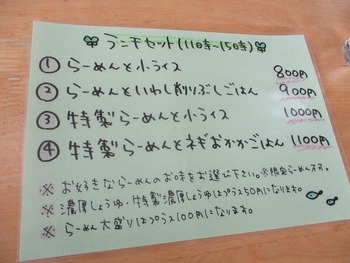 ランチセット(11時~15時)
① らーめんと小ライス 800円
② らーめんといわし削りぶしごはん 900円
③ 特製らーめんと小ライス 1000円
④ 特製らーめんとネギおかかごはん 1100円
※ お好きならーめんのお味をお選び下さい。※限定らーめん不可。
※ 濃厚しょうゆ・特製濃厚しょうゆはプラス50円になります。
※ らーめん大盛りはプラス100円になります。